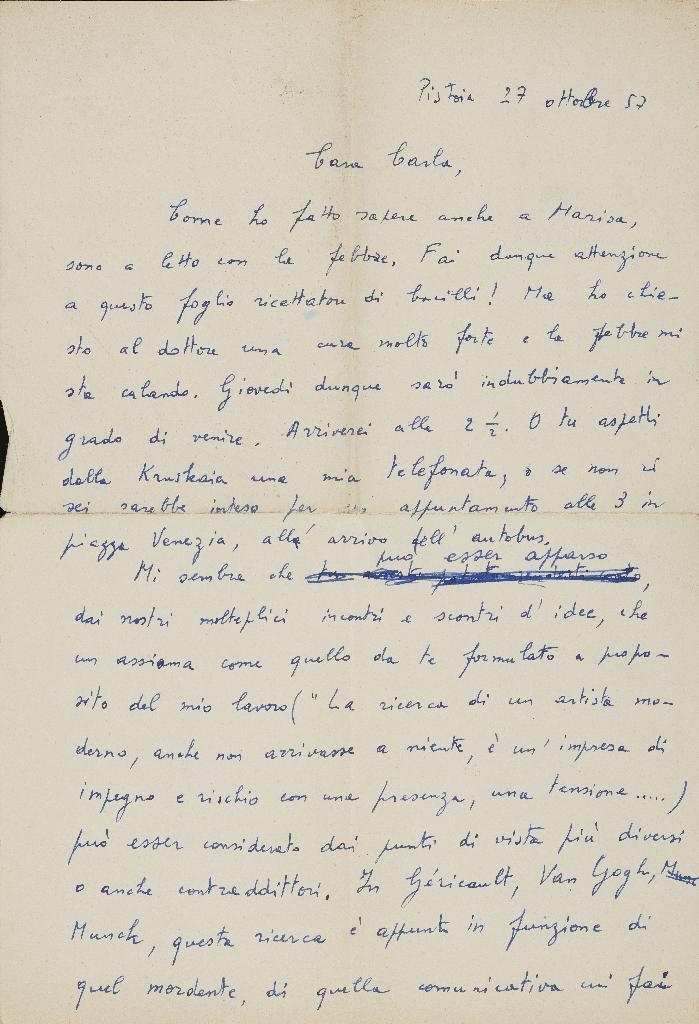 Pistoia 27 ottobre 57
Cara Carla,
Come ho fatto sapere anche a Marisa,
sono a letto con la febbre. Fai dunque attenzione
a questo foglio ricettatore di bacilli! Ma ho chie-
sto al dottore una cura molto forte e la febbre mi
sta calando. Giovedì dunque sarò indubbiamente in
grado di venire. Arriverei alle 2 ½. O tu aspetti
dalla Kruskaia una mia telefonata, o se non ci
sei sarebbe inteso per un appuntamento alle 3 in
piazza Venezia, all'arrivo dell'autobus.
può esser apparso
Mi sembra che
dai nostri molteplici incontri e scontri d'idee, che
un assioma come quello da te formulato a propo-
sito del mio lavoro ("La ricerca di un artista mo-
derno, anche non arrivasse a niente, è un'impresa di
impegno e rischio con una presenza, una tensione.....)
può esser considerato dai punti di vista più diversi
o anche contraddittori. In Géricault, Van Gogh,
Munch, questa ricerca è appunto in funzione di
quel mordente, di quella comunicativa cui fai